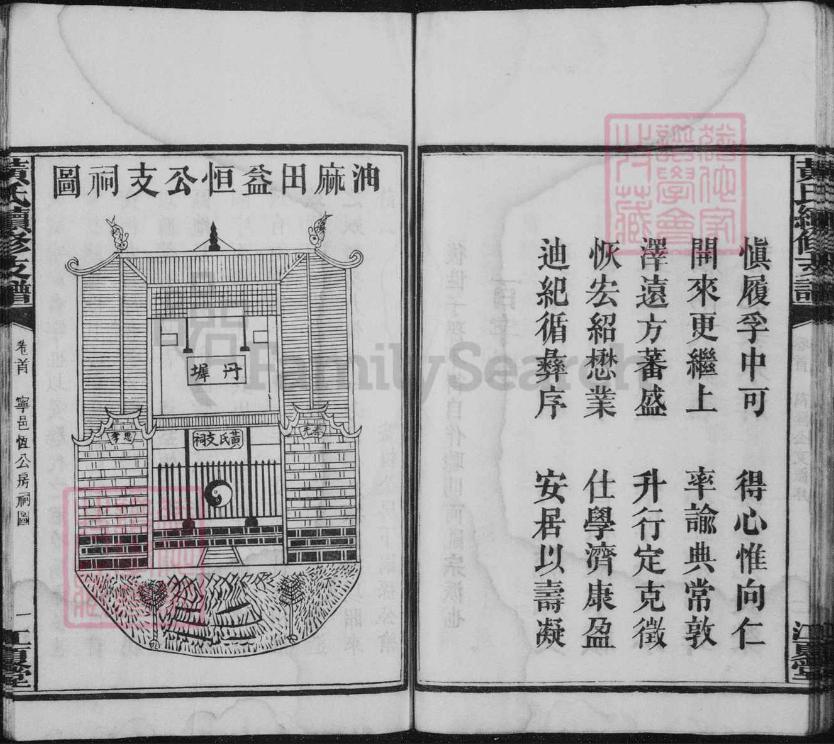 慎履孚中可 得心惟向仁
開來更繼上 率諭典常敦
澤遠方蕃盛 升行定克徵
恢宏紹懋業 仕學濟康盈
迪紀循彝序 安居以壽凝
黃氏續修支譜
江夏堂
油麻田益恒公支祠圖
丹墀
黃氏支祠
黃氏續修支譜
卷首 寧邑恆公房祠圖
一
江夏堂
FamilySearch